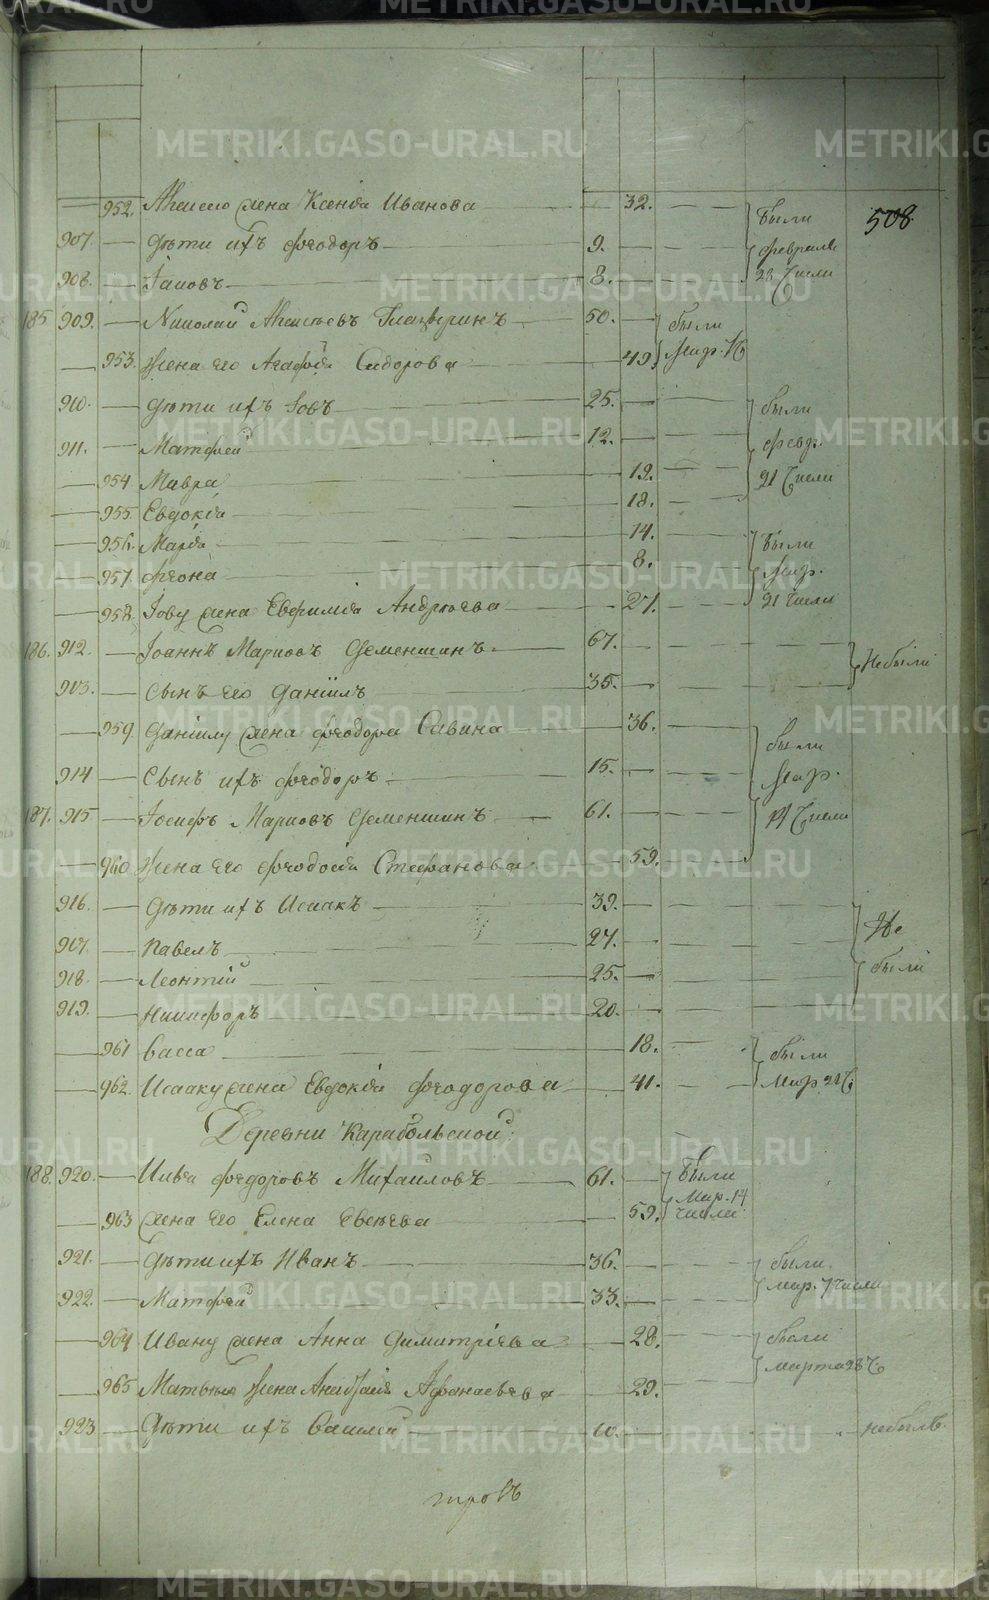 508.
952. Алексею жена Ксенiя Иванова 32. Были
907. Дѣти ихъ Феодоръ 9. Февраля
908. Iаковъ 8. 28 Числа
185 909. Николай Алексѣевъ 50. были
953. Жена его Агафiя Сидорова 49 Мар.
910. Дѣти ихъ Iовъ 25. были
911. Матфей 12. Февр.
954 Мавра 19. 21 Числа
955. Евдокiя 18.
956. Марiя 14. Были
957. Феона 8. Мар.
958. Iову жена Евфимiя Андреева 27. 21 Числа
186. 912. Iоаннъ Марковъ Деменшинъ 67. Небыли
913. Сынъ его Данiилъ 35.
959 Данiилу жена Феодора Савина 36. были
914 Сынъ ихъ Феодоръ 15. Мар.
187. 915 Iосифъ Марковъ Деменшинъ 61. 14 Числа
960 Жена его Феодосiя Стефанова 59.
916. Дѣти ихъ Исаакъ 39. Не
917. Павелъ 27. были
918. Леонтiй 25.
919. Никифоръ 20.
961 Васса 18. были
962. Исааку жена Евдокiя Феодорова 41. Мар 21 Ч.
Деревни Карабольской.
188. 920. Илья Феодоровъ Михайловъ 61. Были Мар. 14
963 Жена его Елена Евсѣева 59. числа
921. Дѣти ихъ Иванъ 36. были
922. Матфей 33. мар. 7 числа
964 Ивану жена Анна Димитрiева 28. были
965 Матвѣя Жена Анастасiя Афанасьева 29. марта 28 Ч.
923 Дѣти ихъ Василей 10. небылъ.
METRIKI.GASO-URAL.RU